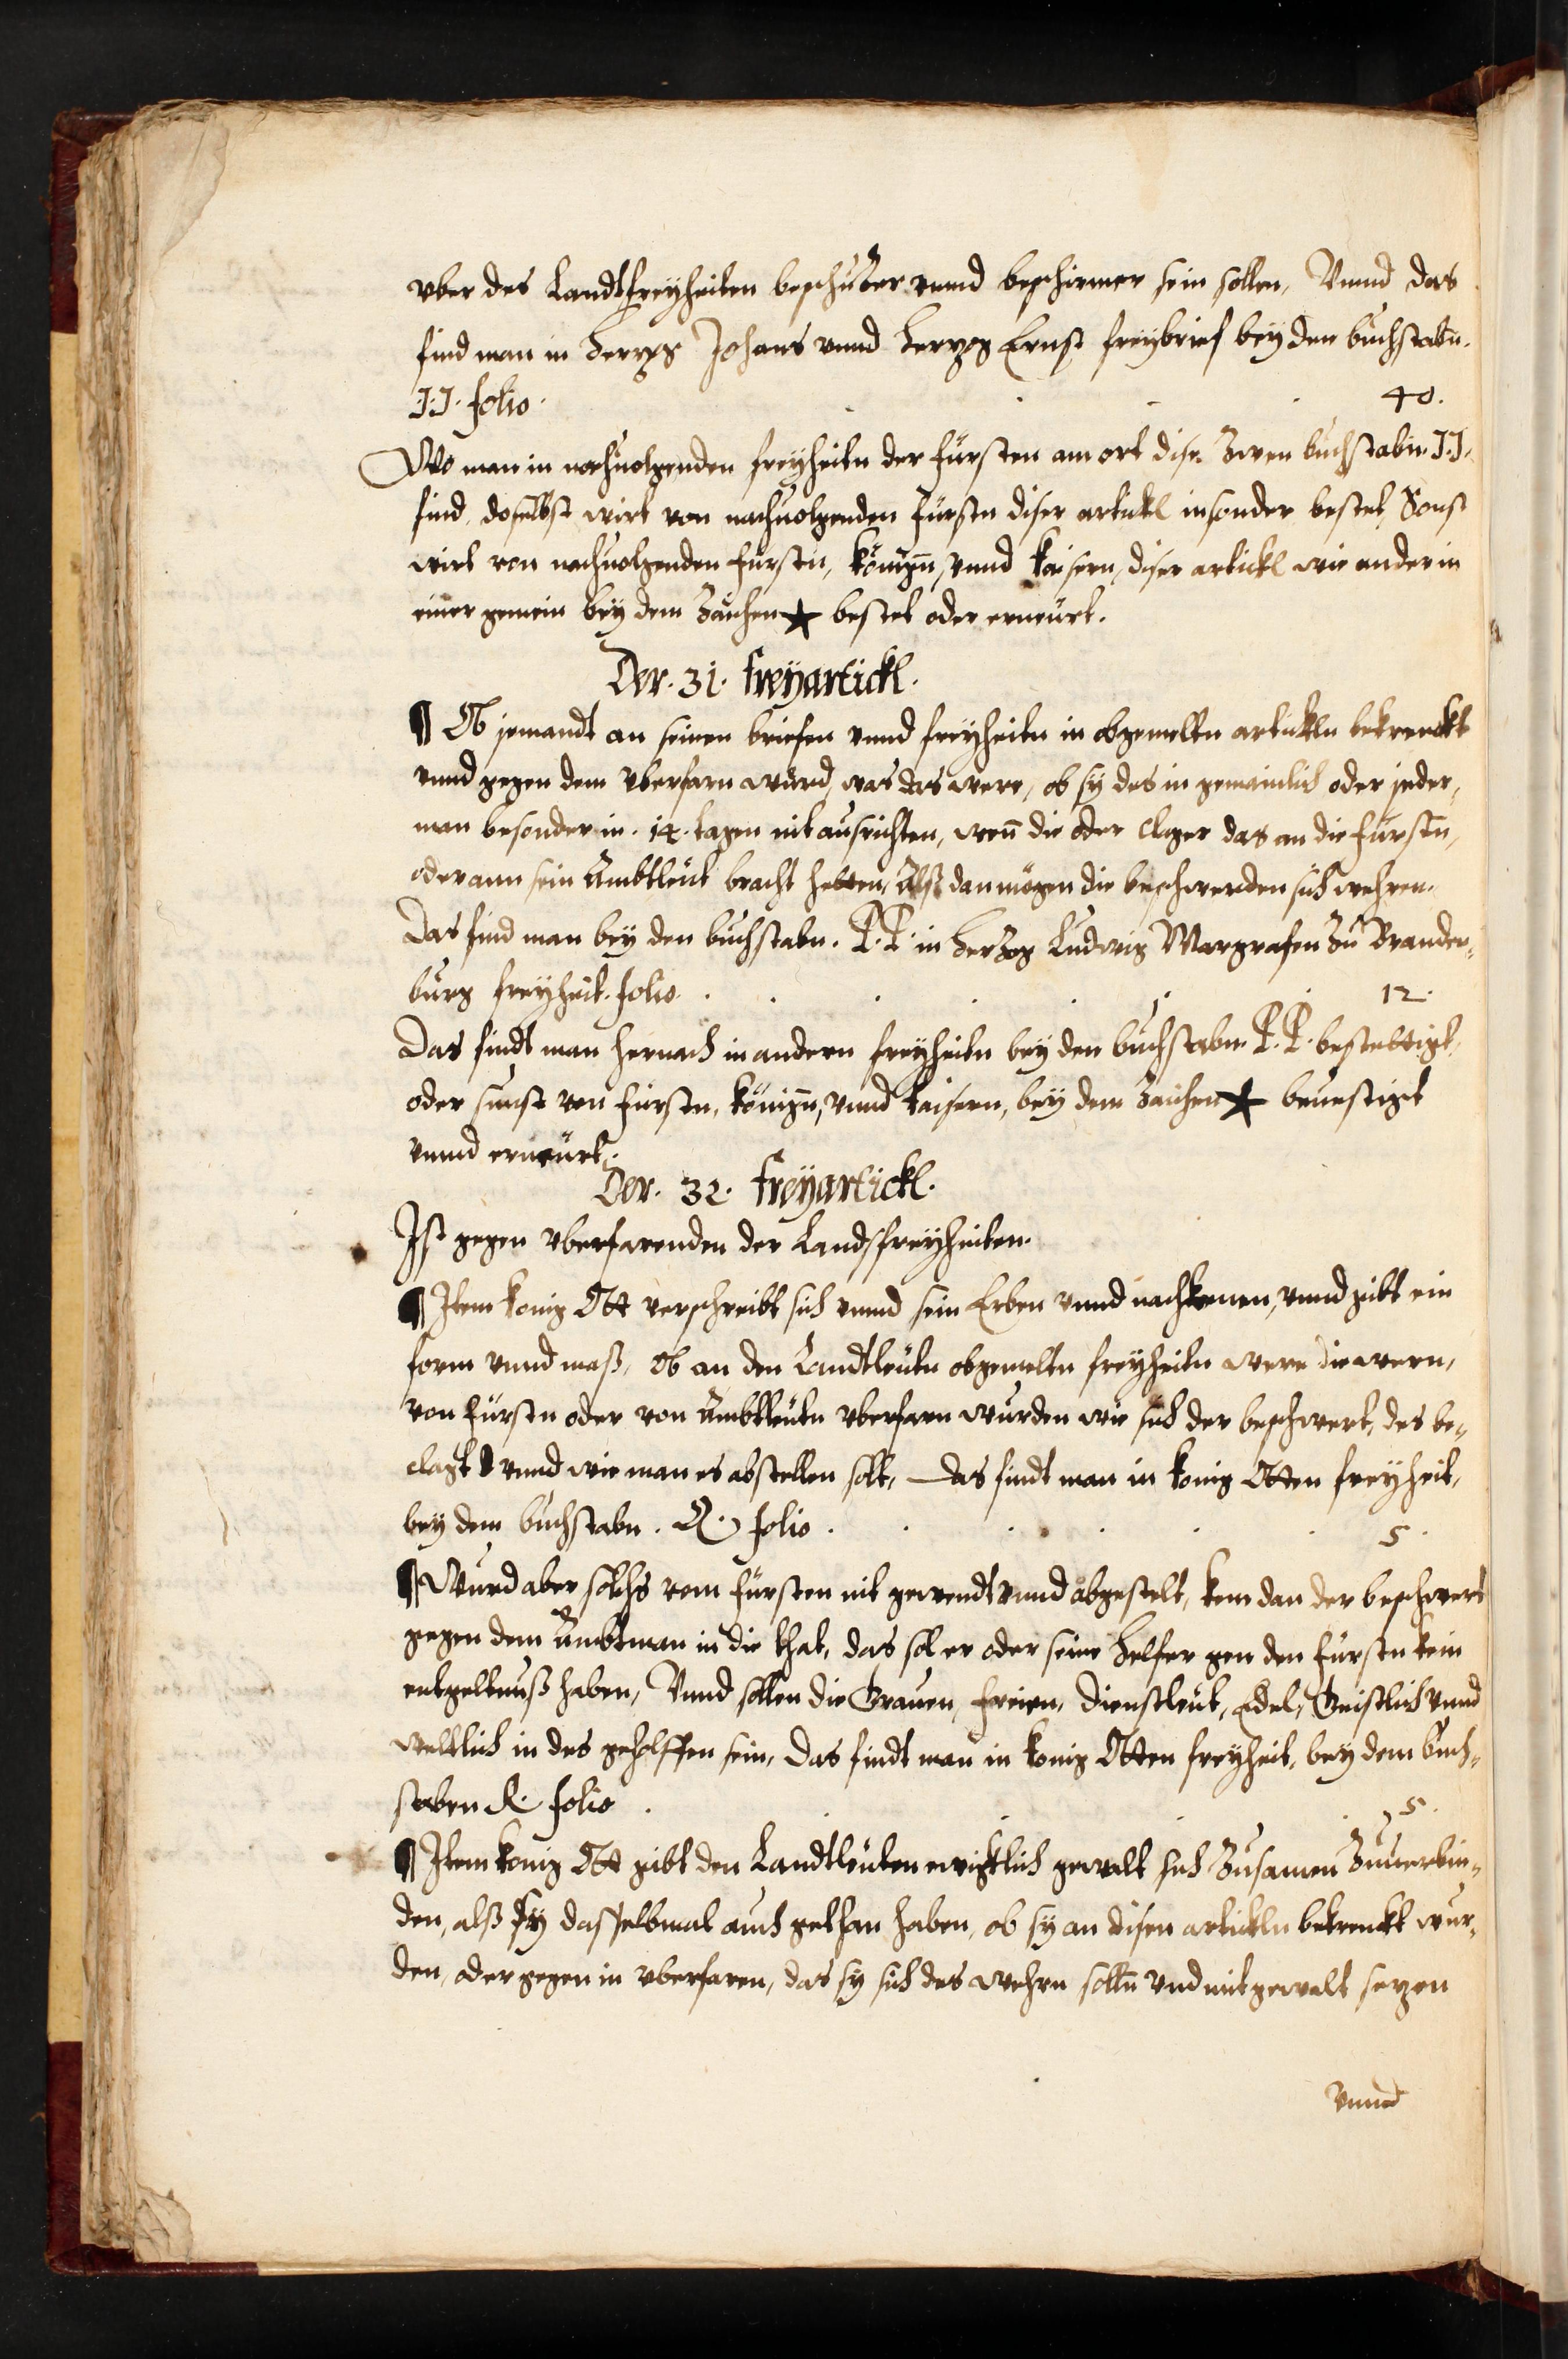 vber des Landtfreyheiten beschutzer vnnd beschirmer sein sollen, Vnnd das
find man in Hertzog Johans vnnd Hertzog Ernst freybrief bey den buchstabn.
J.J. folio. 40.
Wo man in nachuolgenden freyheitn der Fürsten am ort dise zwen buchstabn. J.J.
find, daselbst wirt von nachuolgenden Fürstn diser artickl insonder bestet, Sonst
wirt von nachuolgenden Fürstn, Könign, vnnd Kaisern, diser artickl wie ander in
einer gemein bey dem Zaichen ★ bestet oder erneurt.
Der. 31. freyartickl.
¶ Ob jemandt an seinen briefen vnnd freyheitn in obgemeltn artickln bekrenckt
vnnd gegen dem vberfarn wurd, was das were, ob sy des in gemainlich oder jeder,
man besonder in. 14. tagen nit ausrichten, wen̄ die oder clager das an die Fürstn,
oder ann sein Ambtleut bracht hetten, Alß dan mögen die beschwerden sich wehren.
Das find man bey den buchstabn. R.R. in Hertzog Ludwig Margrafen zu Branden,
burg freyheit. folio. 12.
Das findt man hernach in andern freyheitn bey den buchstabn. R.R. bestettigt,
oder sunst von Fürstn, Könign, vnnd Kaisern, bey dem Zaichen ★ beuestigt
vnnd erneurt.
Der. 32. freyartickl.
Ist gegen vberfarenden der Landsfreyheiten.
¶ Item konig Ott verschreibt sich vnnd sein Erben vnnd nachkomen, vnnd gibt ein
form vnnd maß, Ob an den Landtleutn obgemeltn freyheitn were die wern,
von Fürstn oder von Ambtleutn vberfarn wurden wie sich der beschwert, des be,
clagt vnnd wie man es abstellen solt, Das findt man in konig Otten freyheit,
bey dem buchstabn. Q. folio. 5.
¶ Wurd aber solchs vom Fürsten nit gewendt vnnd abgestelt, kem dan der beschwert
gegen dem Ambtman in die that, das sol er oder seine Helfer gen den Fürstn kein
entgeltnuß haben, Vnnd sollen die Grauen, Freien, Dienstleut, Edel, Geistlich vnnd
weltlich in des geholffen sein, Das findt man in konig Otten freyheit, bey dem buch,
staben R. folio. 5.
¶ Item konig Ott gibt den Landtleuten ewigklich gewalt sich zusamen zuuerbin,
den, alß sy dasselbmal auch gethan haben, ob sy an disen artickln bekrenckt wur,
den, oder gegen in vberfaren, das sy sich des wehrn solln vnd mit gewalt setzen
vnnd